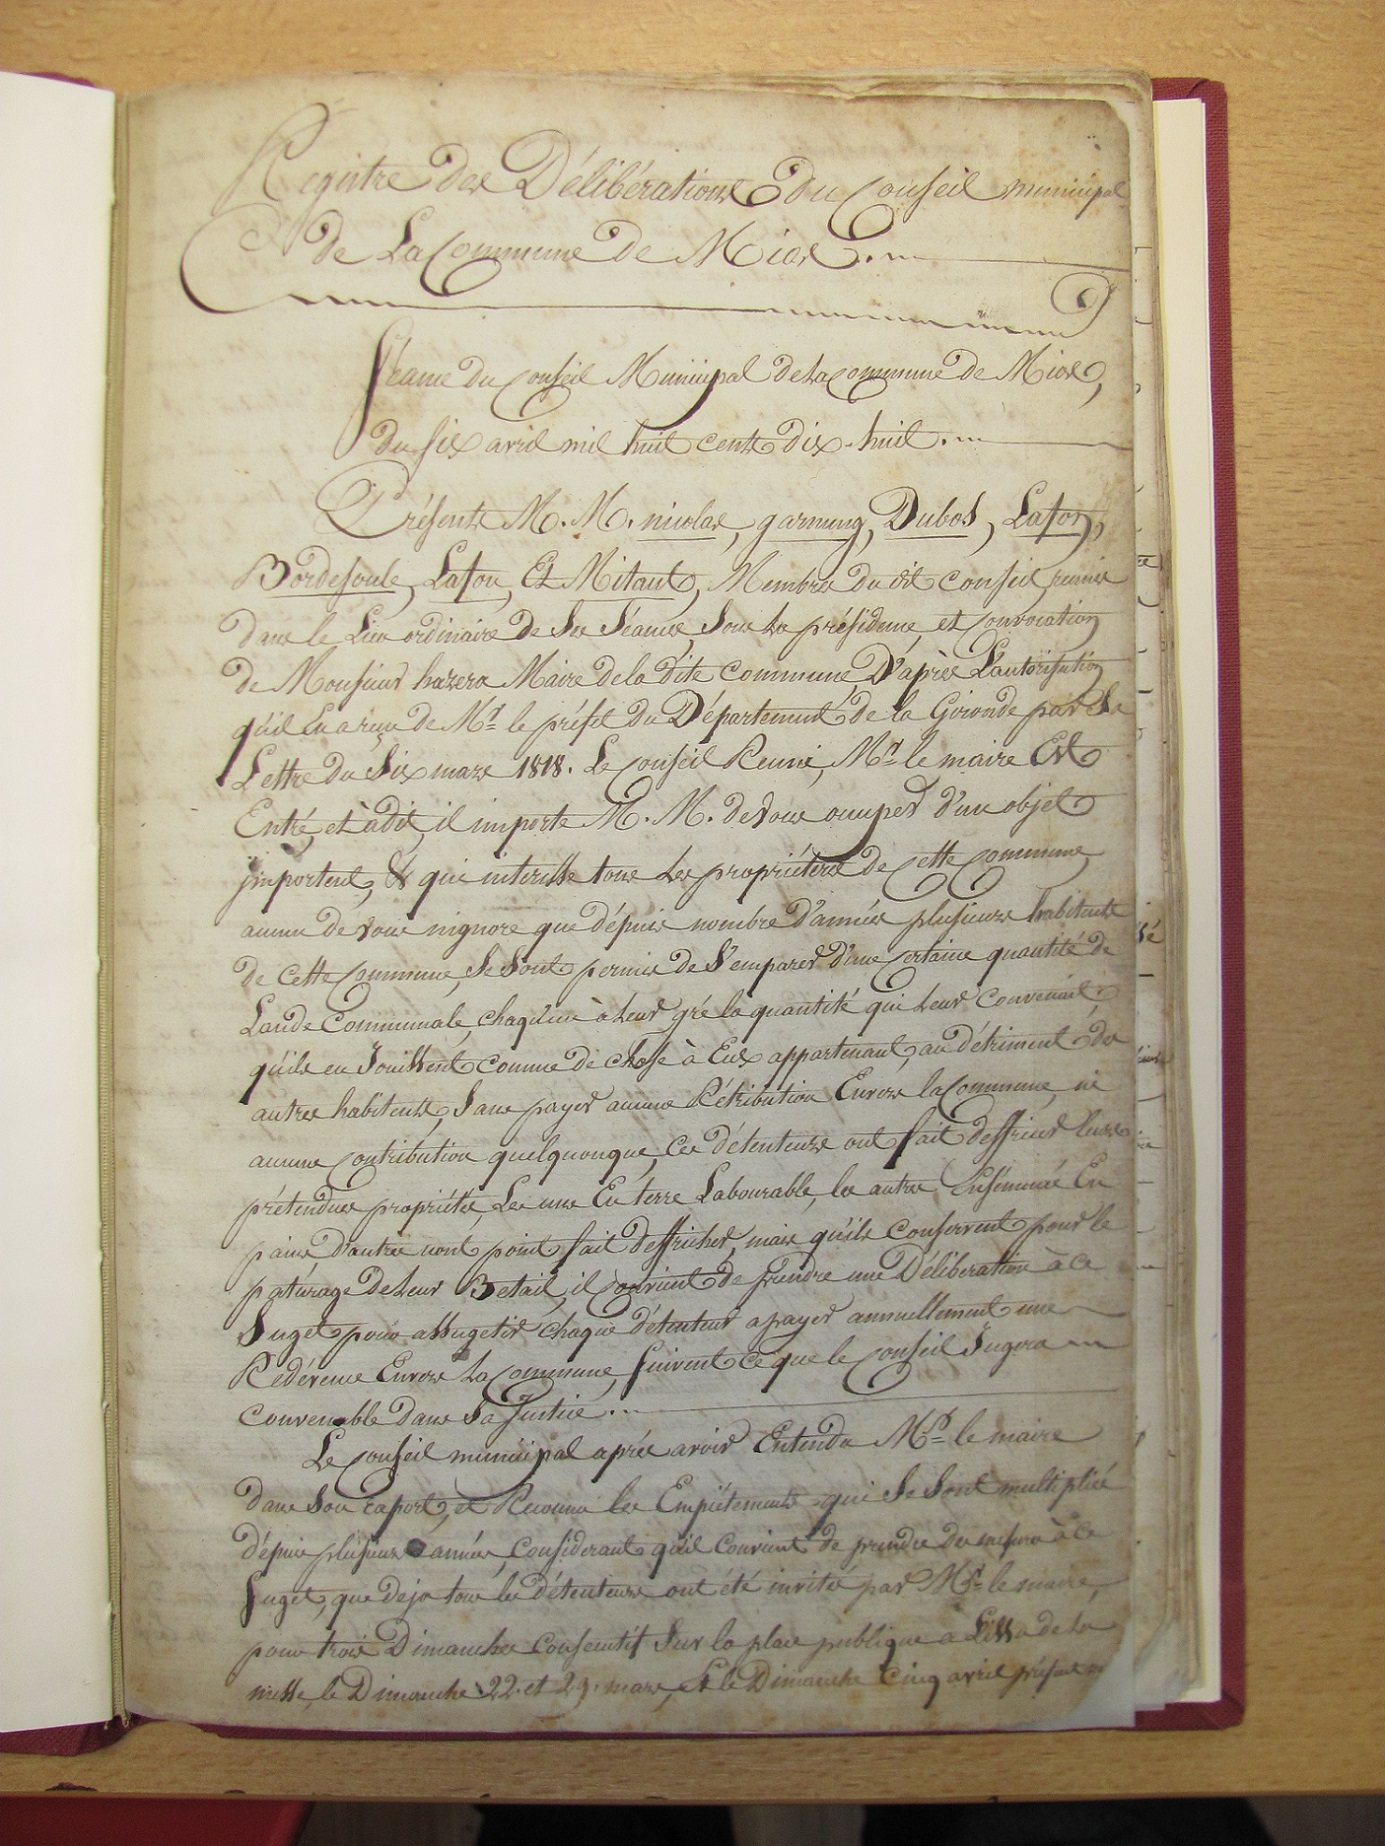 Registre des Délibérations du Conseil municipal
de La Commune de Mios.
Séance du Conseil Municipal de La commune de Mios,
du six avril mil huit cents dix-huit.
Présents M. M. nicolas, garnung, Dubos, Lafon,
Bordesoule, Lafon, Et Mitaut, Membres du dit conseil reunis
dans le Lieu ordinaire de Ses Séances, Sous La présidence, et Convocation
de Monsieur hazera Maire de la dite commune D'après L'autorisation
qu'il En a reçu de Mr. le préfet du Département de la Gironde par Sa
Lettre du Six mars 1818. Le Conseil Reuni, Mr. le maire Est
Entré, et à dit, il importe M. M. de vous occuper d'un objet
jmportent, & qui interesse tous Les propriéteres de Cette Commune,
aucun de vous n'ignore que dépuis nombre d'années plusieurs habitents
de cette Commune, Se Sont permis de S'emparer d'une Certaine quantité de
Lande Communale, chaqu'un à Leur gré la quantité qui Leur Convenait,
qu'ils en Jouissent comme de chose à Eux appartenant, au détriment des
autres habitents, Sans payer aucune Rétribution Envers la Commune, ni
aucune Contribution quelquonque, Ces détenteurs ont fait deffricher leurs
prétendues propriétés, Les uns En terre Labourable, les autres Ensemencé En
pains d'autres n'ont point fait deffricher, mais qu'ils Conservent pour le
paturage de Leur Betail, il Convient de prendre une Déliberation à ce
Suget pour assugetir chaque détenteur a payer annuellement une
Redévence Envers La Commune, Suivent ce que le Conseil Jugera
convenable dans Sa Justice.
Le Conseil municipal après avoir Entendu Mr. le maire
dans Son raport, et Reconnu les Empiétements qui Se Sont multipliés
dépuis plusieurs années, Considerant qu'il Convient de prendre des mesures à ce
Suget, que deja tous les détenteurs ont été invités par Mr. le maire,
pour trois Dimanches Consecutif Sur la place publique a L'issu de La
messe, le Dimanche 22. et 29. mars, Et le Dimanche Cinq avril présent